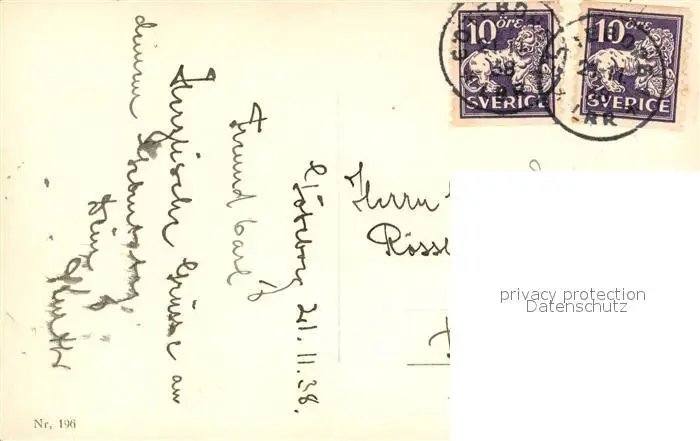 Göteborg 21.11.38.
Freund Carl!
Herzliche Grüsse an
deinem Geburtstag
Dein
Herrn
Rössl
10 ÖRE
SVERIGE
10 ÖRE
SVERIGE
GÖTEBORG
21 11
38
LBR
privacy protection
Datenschutz
Nr. 196